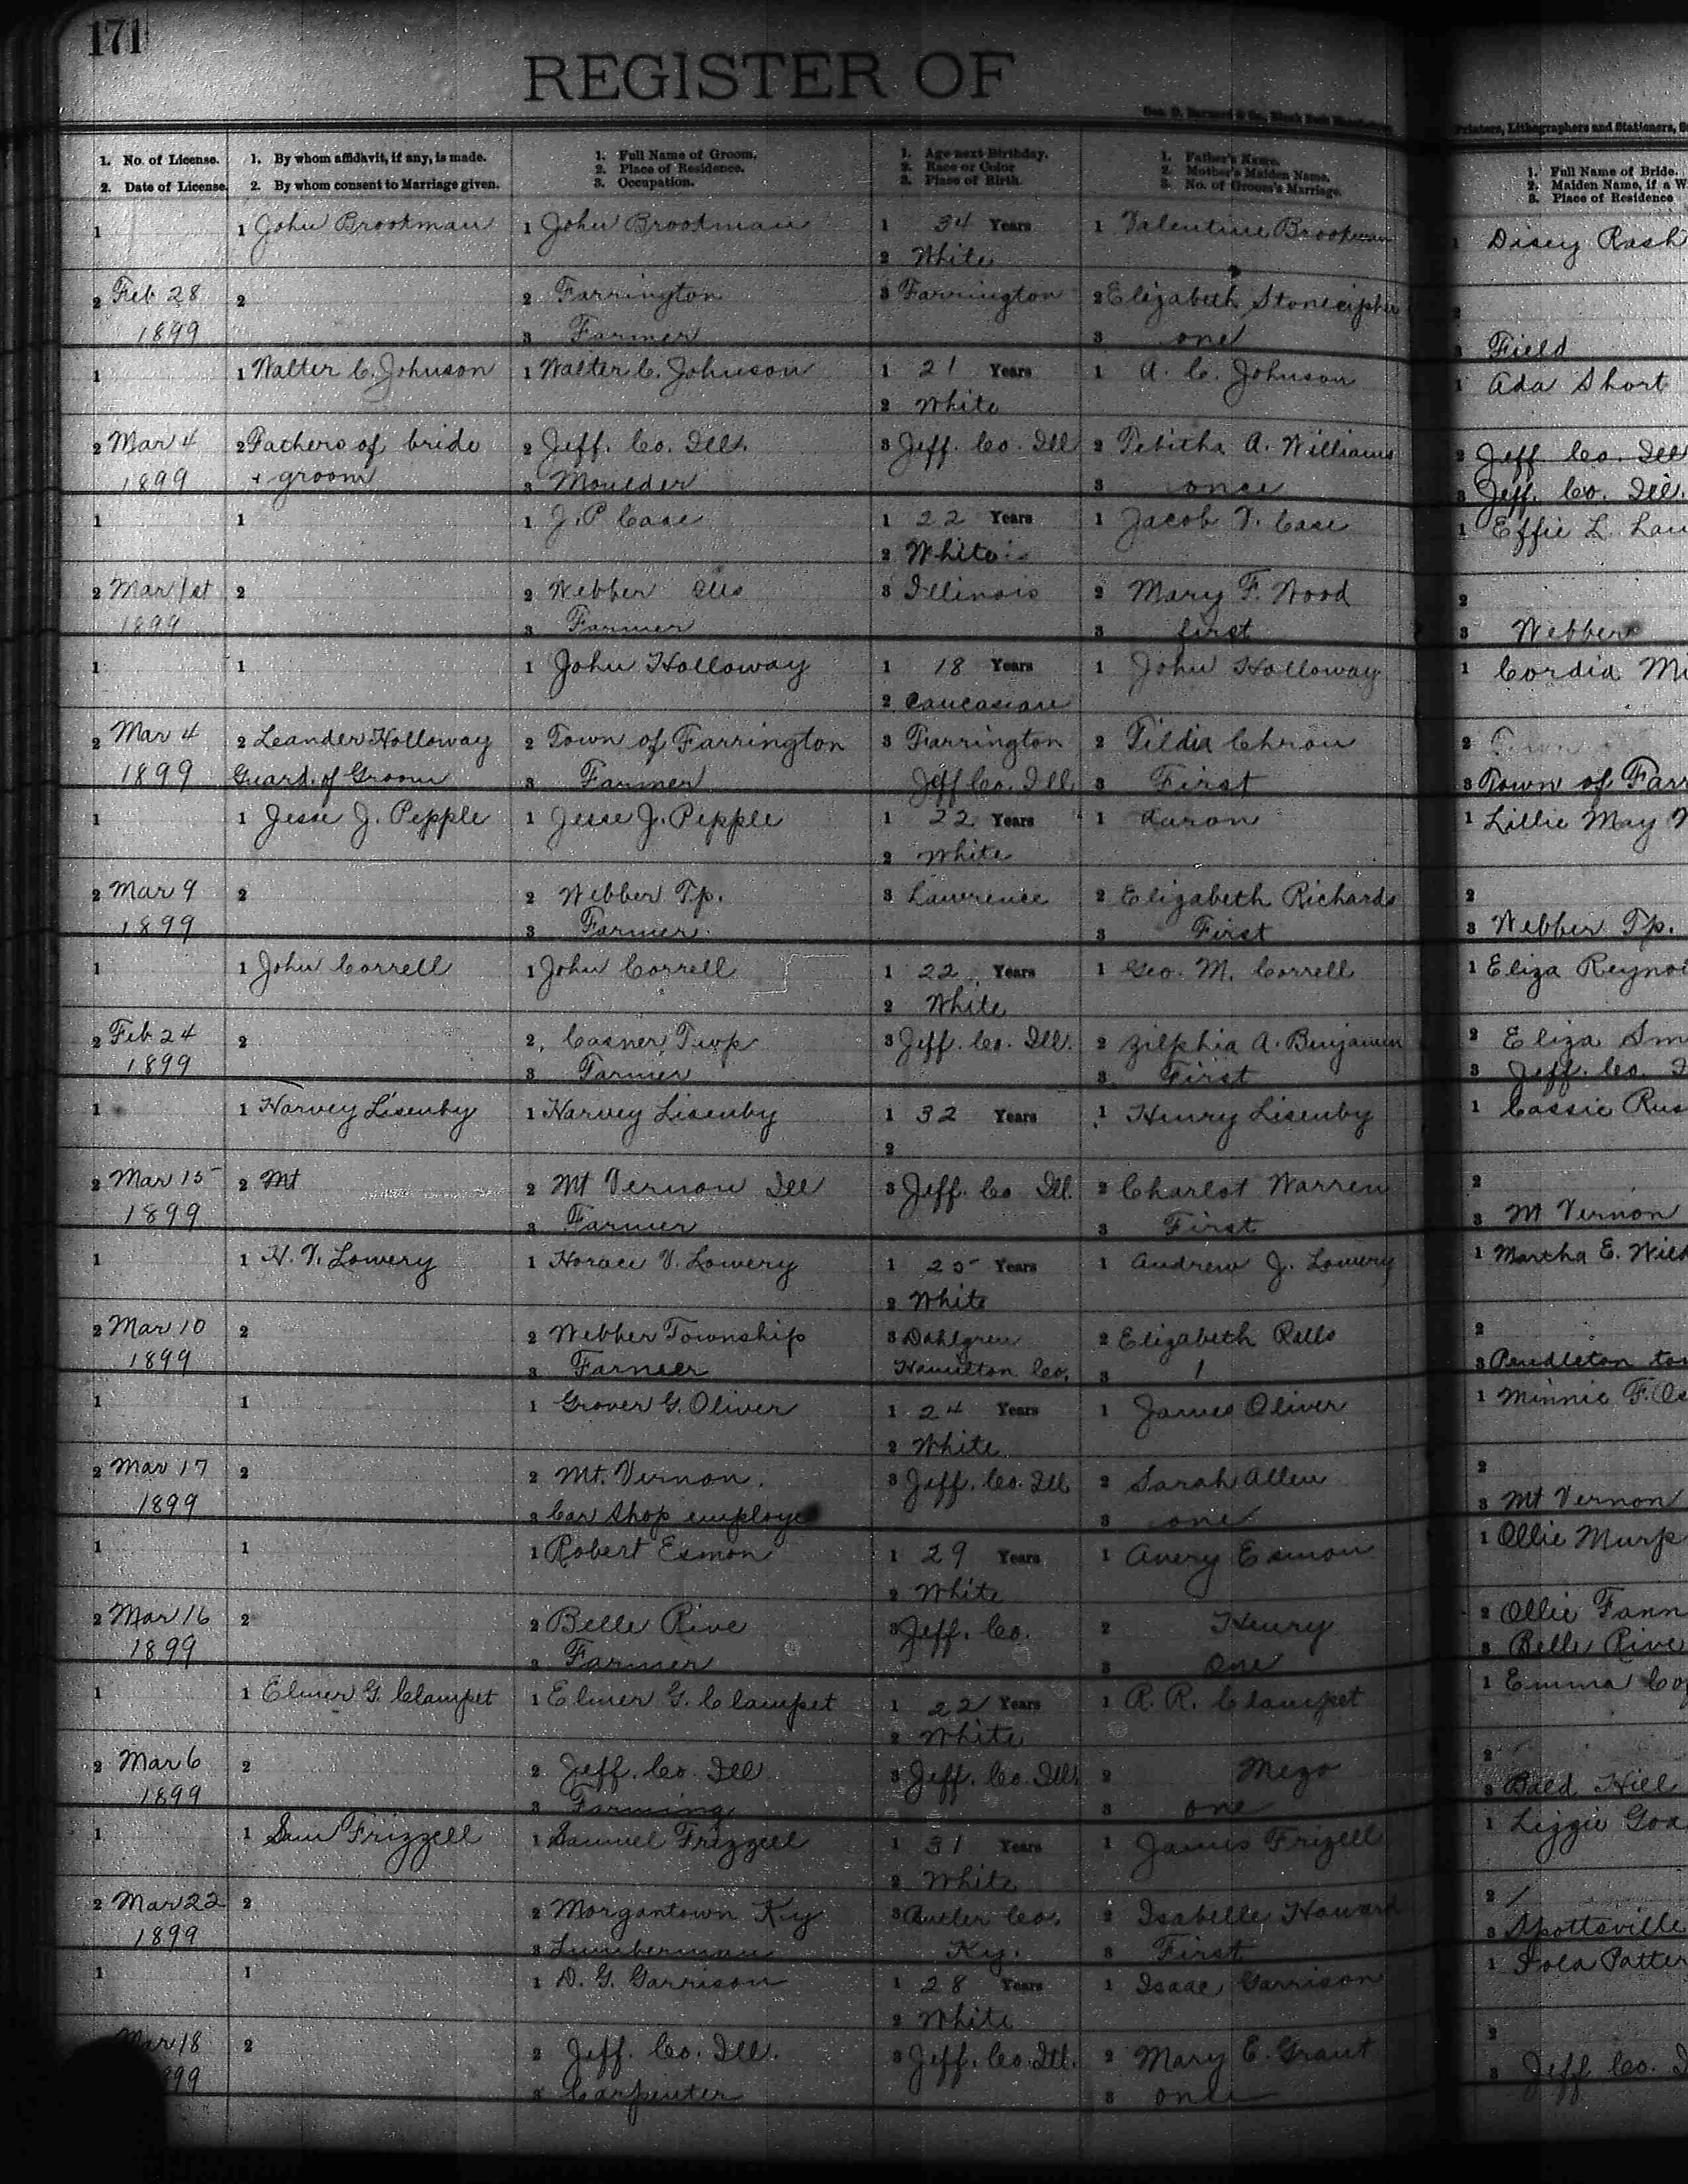 171
REGISTER OF
Geo. D. Barnard & Co., Blank Book
Printers, Lithographers and Stationers,
1. No. of License.
2. Date of License.
1. By whom affidavit, if any, is made.
2. By whom consent to Marriage given.
1. Full Name of Groom.
2. Place of Residence.
3. Occupation.
1. Age next Birthday.
2. Race or Color
3. Place of Birth.
1. Father's Name.
2. Mother's Maiden Name.
3. No. of Groom's Marriage.
1. Full Name of Bride.
2. Maiden Name, if a W
3. Place of Residence
1 1 John Brookman 1 John Brookman 1 34 Years 1 Valentine Brookman 1 Disey Rash
2 White
2 Feb 28 2 2 Farrington 3 Farrington 2 Elizabeth Stonecipher 2
1899 3 Farmer 3 one 3 Field
1 1 Walter C. Johnson 1 Walter C. Johnson 1 21 Years 1 A. C. Johnson 1 Ada Short
2 White
2 Mar 4 2 Fathers of bride 2 Jeff. Co. Ill. 3 Jeff. Co. Ill 2 Tebitha A. Williams 2 Jeff. Co. Ill
1899 + groom 3 Moulder 3 once 3 Jeff. Co. Ill.
1 1 1 J. P Case 1 22 Years 1 Jacob V. Case 1 Effie L. Lau
2 White
2 Mar 1st 2 2 Webber Ills 3 Illinois 2 Mary F. Wood 2
1899 3 Farmer 3 first 3 Webber
1 1 1 John Holloway 1 18 Years 1 John Holloway 1 Cordia Mi
2 Caucasian
2 Mar 4 2 Leander Holloway 2 Town of Farrington 3 Farrington 2 Tildia Chron 2 Town
1899 Guard. of Groom 3 Farmer Jeff Co. Ill 3 First 3 Town of Farr
1 1 Jesse J. Pepple 1 Jesse J. Pepple 1 22 Years 1 Aaron 1 Lillie May
2 White
2 Mar 9 2 2 Webber Tp. 3 Lawrence 2 Elizabeth Richards 2
1899 3 Farmer 3 First 3 Webber Tp.
1 1 John Correll 1 John Correll 1 22 Years 1 Geo. M. Correll 1 Eliza Reynol
2 White
2 Feb 24 2 2 Casner Twp 3 Jeff. Co. Ill. 2 Zilphia A. Benjamin 2 Eliza Sm
1899 3 Farmer 3 First 3 Jeff. Co. I
1 1 Harvey Lisenby 1 Harvey Lisenby 1 32 Years 1 Henry Lisenby 1 Cassie Rus
2
2 Mar 15 2 Mt 2 Mt Vernon Ill 3 Jeff. Co Ill. 2 Charlot Warren 2
1899 3 Farmer 3 First 3 Mt Vernon
1 1 H. V. Lowery 1 Horace V. Lowery 1 25 Years 1 Andrew J. Lowery 1 Martha E. Wild
2 White
2 Mar 10 2 2 Webber Township 3 Dahlgren 2 Elizabeth Rells 2
1899 3 Farmer Hamilton Co. 3 1 3 Pendleton tow
1 1 1 Grover G. Oliver 1 24 Years 1 James Oliver 1 Minnie F. Os
2 White
2 Mar 17 2 2 Mt. Vernon. 3 Jeff. Co. Ill 2 Sarah Allen 2
1899 3 Car Shop employe 3 one 3 Mt Vernon
1 1 1 Robert Esmon 1 29 Years 1 Avery Esmon 1 Ollie Murp
2 White
2 Mar 16 2 2 Belle Rive 3 Jeff. Co. 2 Henry 2 Ollie Fann
1899 3 Farmer 3 One 3 Belle Rive
1 1 Elmer G. Clampet 1 Elmer G. Clampet 1 22 Years 1 R. R. Clampet 1 Emma Cop
2 White
2 Mar 6 2 2 Jeff. Co. Ill 3 Jeff. Co. Ill. 2 Mezo 2
1899 3 Farming 3 one 3 Bald Hill
1 1 Sam Frizzell 1 Samuel Frizzell 1 31 Years 1 James Frizell 1 Lizzie Goa
2 White
2 Mar 22 2 2 Morgantown Ky 3 Butler Co. 2 Isabelle Howard 2
1899 3 Lumberman Ky. 3 First 3 Spottsville
1 1 1 D. G. Garrison 1 28 Years 1 Isaac Garrison 1 Iola Patter
2 White
Mar 18 2 2 Jeff. Co. Ill. 3 Jeff. Co. Ill. 2 Mary E. Grant 2
99 3 Carpenter 3 once 3 Jeff Co. I